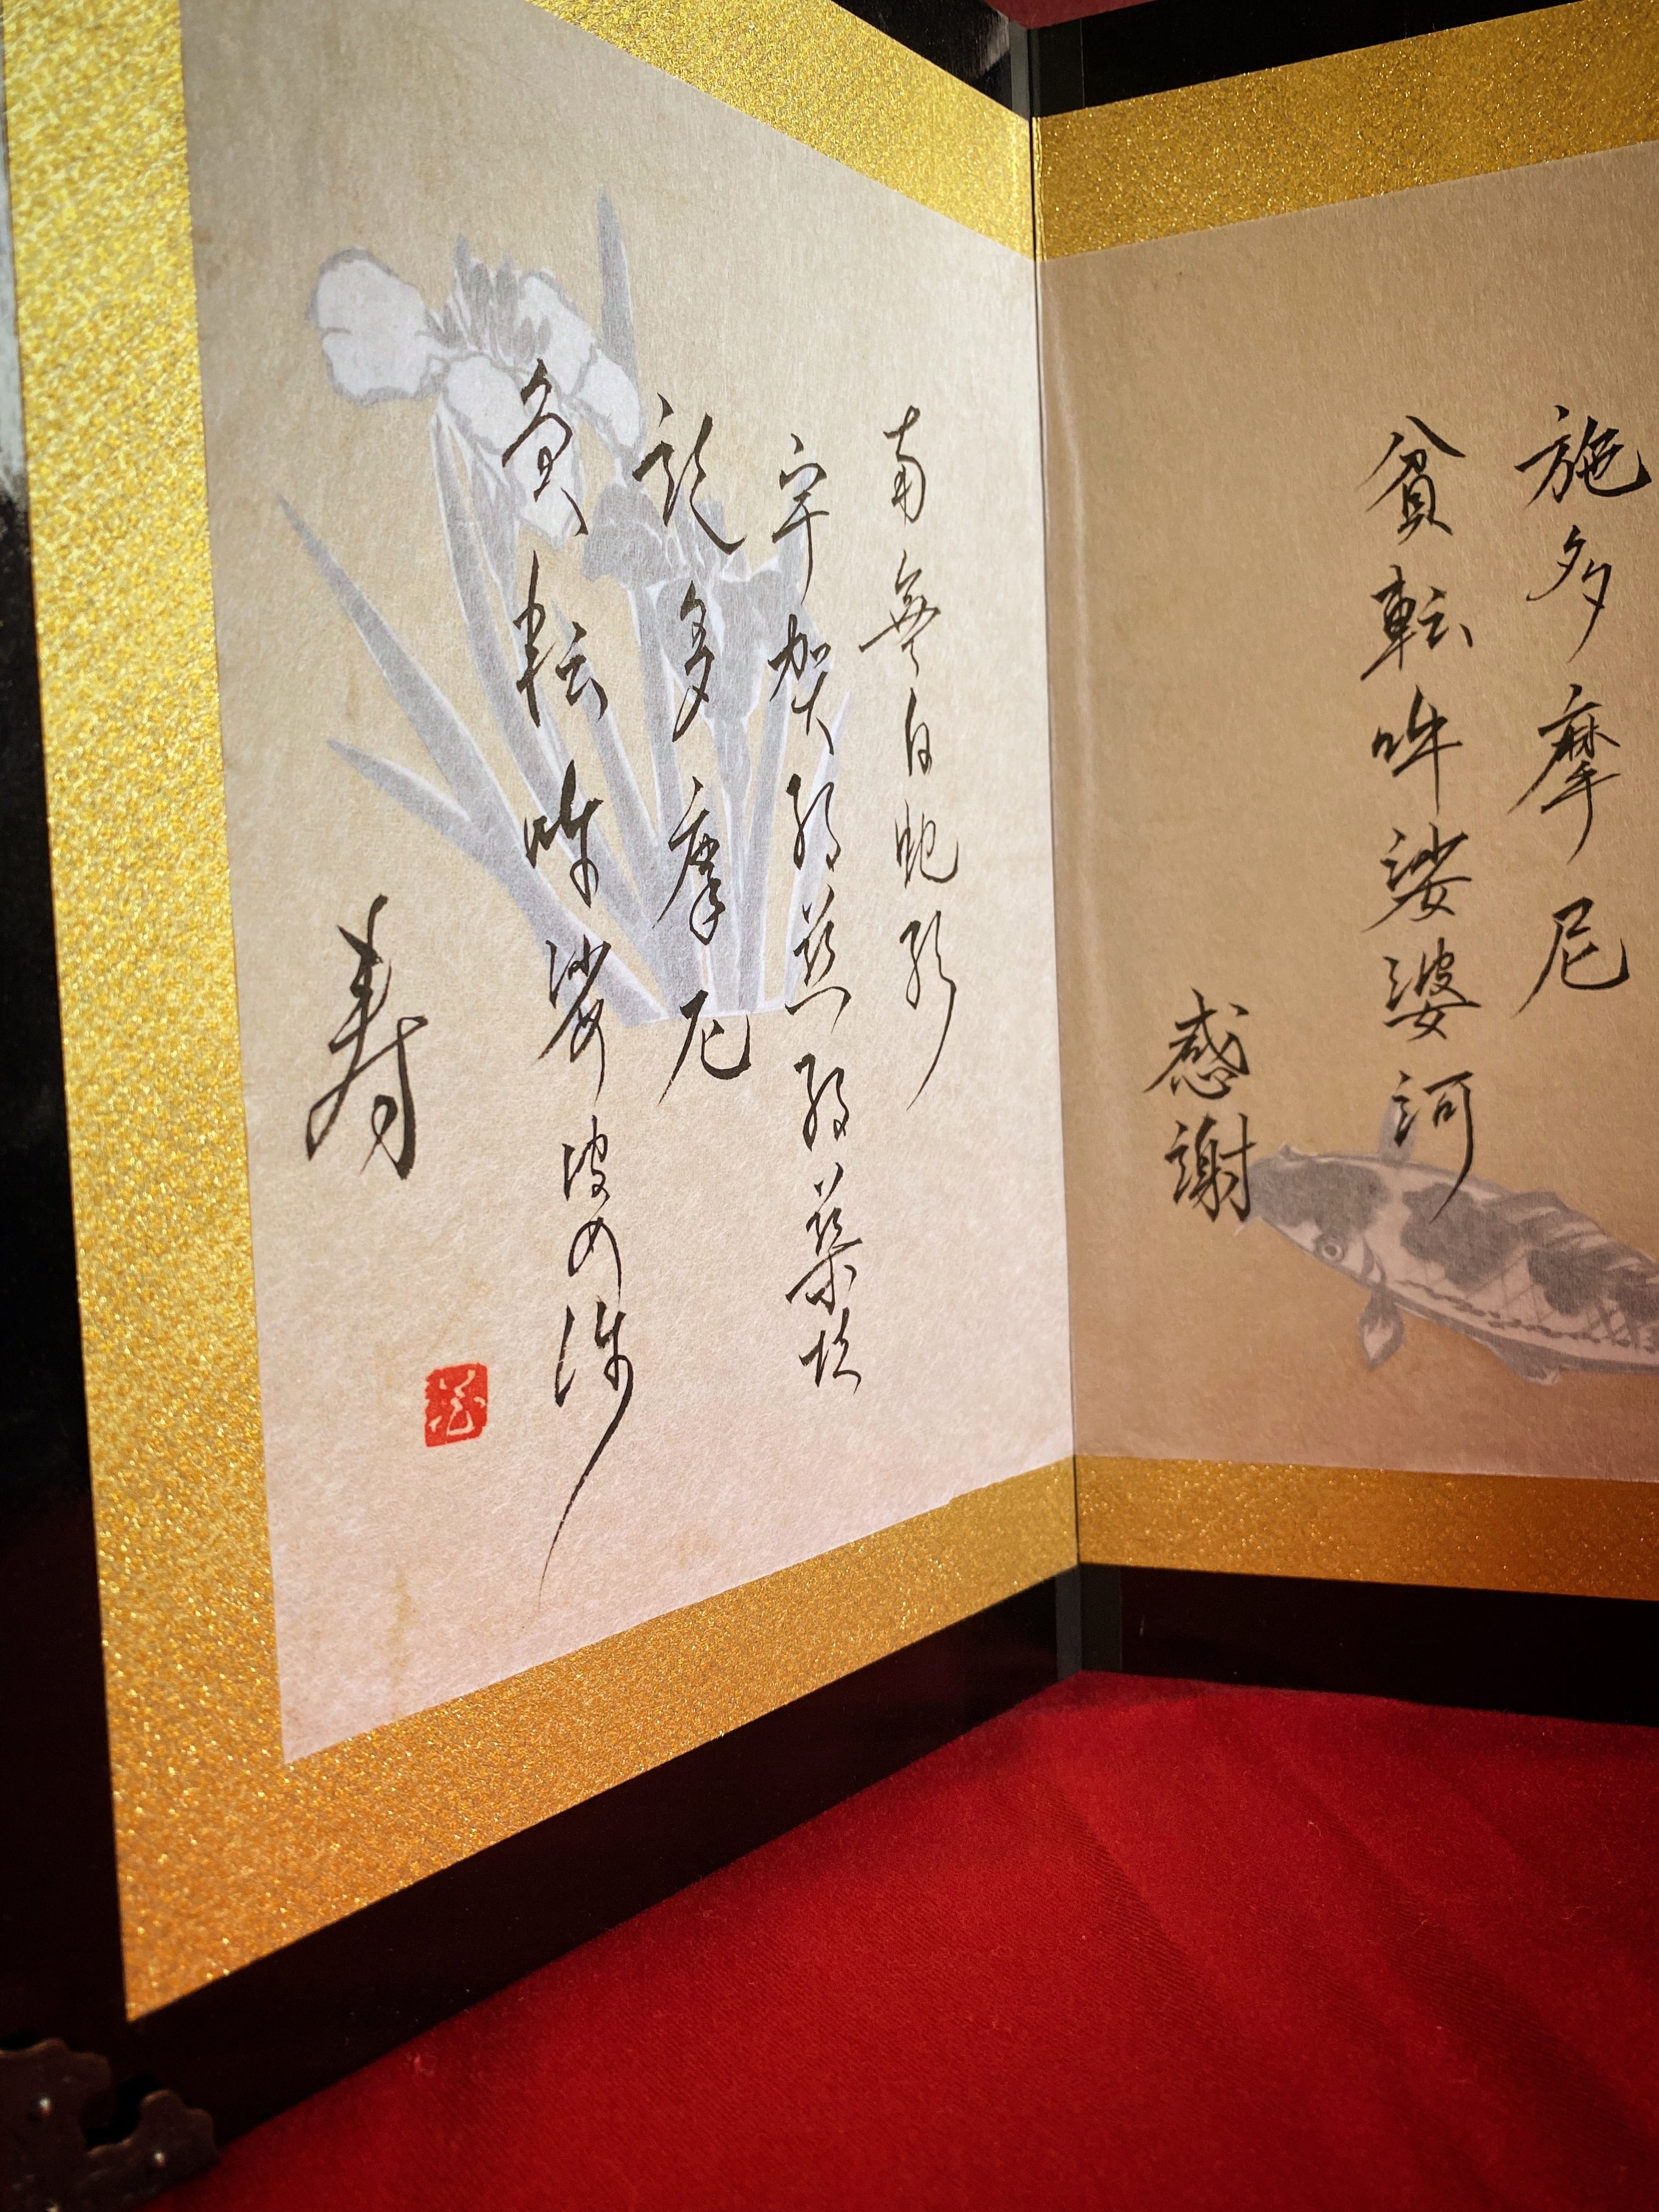 施多摩尼
貧転吽娑婆訶
感謝
南無白蛇形
宇賀耶惹耶蘖
施多摩尼
貧転吽娑婆訶
寿